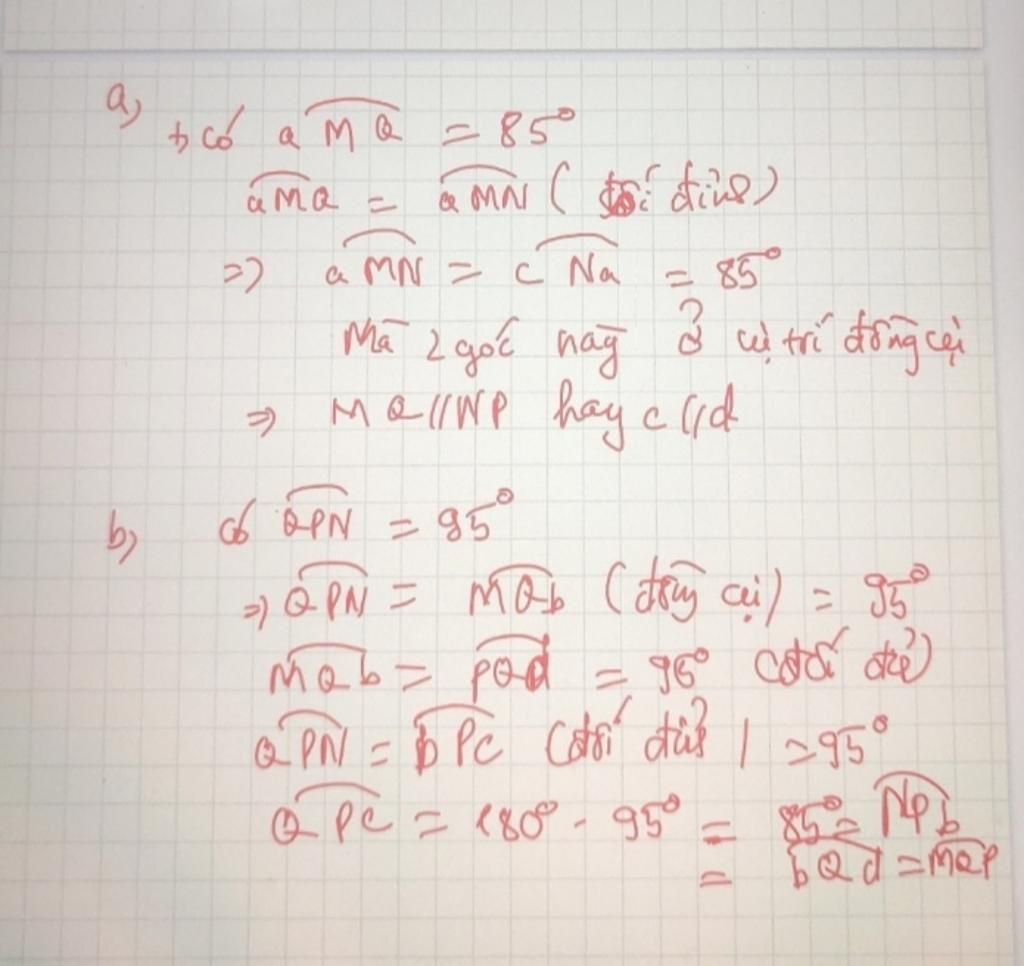 a,
+ Có aMQ = 85°
aMQ = aMN (đối đỉnh)
=> aMN = cNa = 85°
Mà 2 góc này ở vị trí đồng vị
=> MQ // NP hay c // d
b, có QPN = 95°
=> QPN = MQb (đồng vị) = 95°
MQb = PQd = 95° (đối đỉ)
QPN = bPc (đối đỉnh) = 95°
QPC = 180° - 95° = 85° = NPb
= bQd = MQP